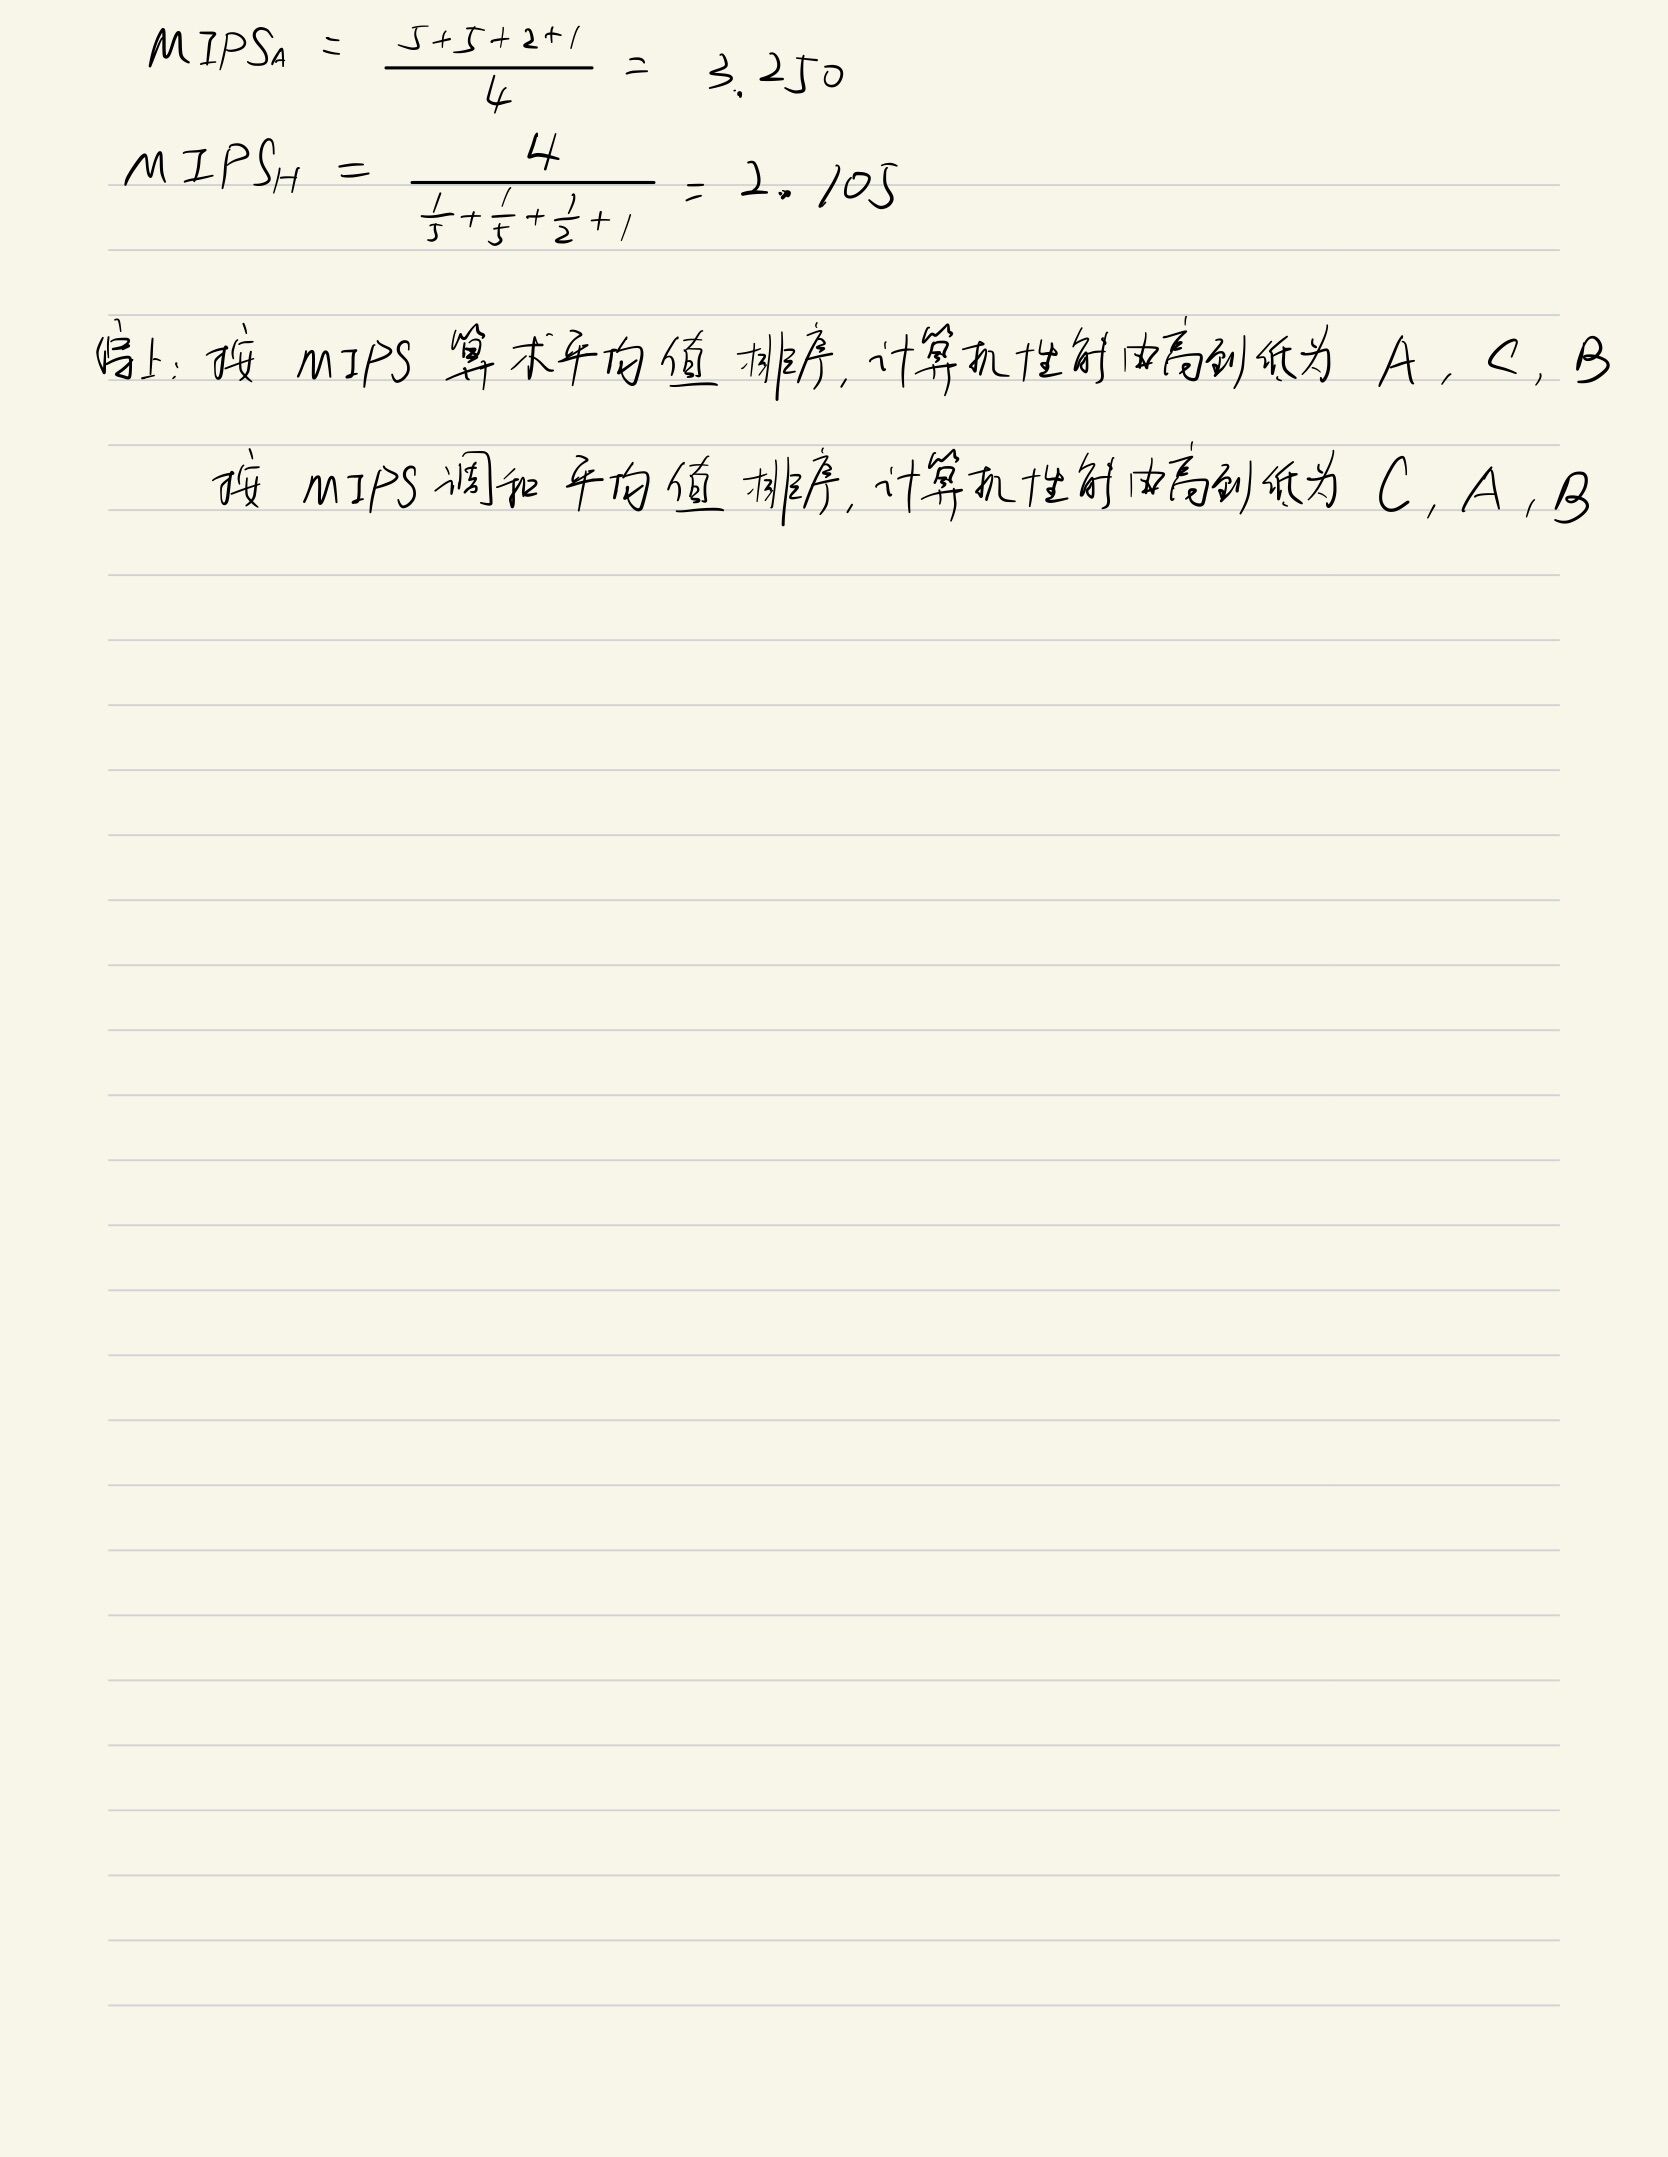 MIPS_A = \frac{5+5+2+1}{4} = 3.250
MIPS_H = \frac{4}{\frac{1}{5}+\frac{1}{5}+\frac{1}{2}+1} = 2.105
综上: 按 MIPS 算术平均值 排序, 计算机性能由高到低为 A, C, B
按 MIPS 调和平均值 排序, 计算机性能由高到低为 C, A, B